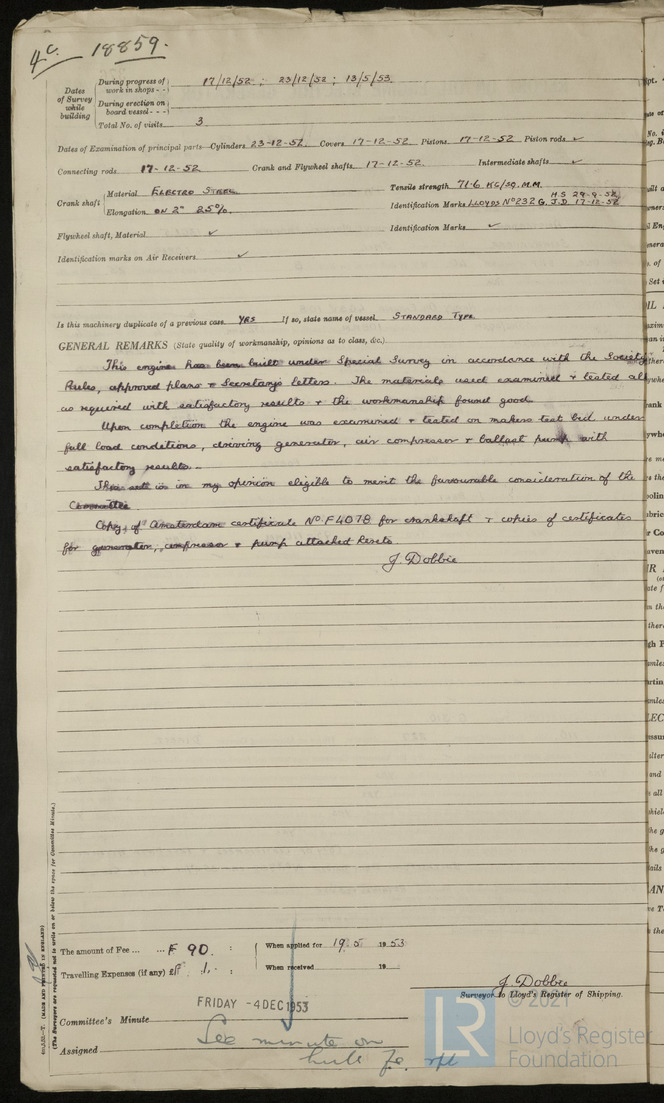 4c. 18859.
Dates of Survey while building
During progress of work in shops - - 17/12/52 ; 23/12/52 ; 13/5/53
During erection on board vessel - - -
Total No. of visits 3
Dates of Examination of principal parts—Cylinders 23-12-52 Covers 17-12-52 Pistons 17-12-52 Piston rods ✓
Connecting rods 17-12-52 Crank and Flywheel shafts 17-12-52 Intermediate shafts ✓
Crank shaft Material ELECTRO STEEL Tensile strength 71.6 KG/SQ.M.M.
Elongation ON 2" 25%. Identification Marks LLOYDS No 232 G. H.S 29-9-52 J.D 17-12-52
Flywheel shaft, Material ✓ Identification Marks ✓
Identification marks on Air Receivers ✓
Is this machinery duplicate of a previous case YES If so, state name of vessel STANDARD TYPE
GENERAL REMARKS (State quality of workmanship, opinions as to class, &c.)
This engine has been built under Special Survey in accordance with the Society's
Rules, approved plans & Secretary's letters. The materials used examined & tested all
as required with satisfactory results & the workmanship found good.
Upon completion the engine was examined & tested on makers test bed under
full load conditions, driving generator, air compressor & ballast pump with
satisfactory results.
This sett is in my opinion eligible to merit the favourable consideration of the
Committee
Copy of Amsterdam certificate No. F4078 for crankshaft & copies of certificates
for generator, compressor & pump attached hereto.
J. Dobbie
The amount of Fee ... ... F 90. : When applied for 19.5 1953
Travelling Expenses (if any) : When received 19
J. Dobbie
Surveyor to Lloyd's Register of Shipping.
FRIDAY -4 DEC 1953
Committee's Minute
See minute on
Assigned hull
(MADE AND PRINTED IN ENGLAND)
(The Surveyors are requested not to write on or below the space for Committee Minute.)
© 2021
LR
Lloyd's Register
Foundation